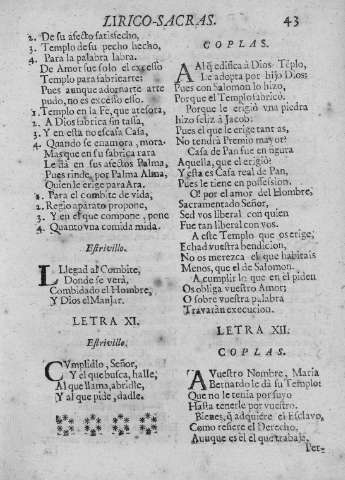 LIRICO-SACRAS. 43
2. De su afecto satisfecho,
3. Templo de su pecho hecho,
4. Para la palabra labra.
De Amor fue solo el excesso
Templo para fabricarte:
Pues aunque adornarte arte
pudo, no es excesso esso.
1. Templo en la Fe, que atesora,
2. A Dios fabrica sin tassa,
3. Y en esta no escasa Casa,
4. Quando se enamora, mora.
Mas que en su fabrica rara
Le està en sus afectos Palma,
Pues rinde, por Palma Alma,
Quien le erige para Ara.
1. Para el combite de vida,
2. Regio aparato propone,
3. Y en el que compone, pone
4. Quanto vna comida mida.
Estrivillo.
LLegad al Combite,
Donde se verà,
Combidado el Hombre,
Y Dios el Manjar.
LETRA XI.
Estrivillo.
CVmplidlo, Señor,
Y el que busca, halle,
Al que llama, abridle,
Y al que pide, dadle.
COPLAS.
Al q̃ edifica à Dios Tẽplo,
Le adopta por hijo Dios:
Pues con Salomon lo hizo,
Porque el Templo fabricò.
Porque le erigò vna piedra
hizo feliz à Jacob:
Pues el que le erige tantas,
No tendrà Premio mayor?
Casa de Pan fue en figura
Aquella, que el erigiò:
Y esta es Casa real de Pan,
Pues le tiene en possession.
O! por el amor del Hombre,
Sacramentado Señor,
Sed vos liberal con quien
Fue tan liberal con vos.
A este Templo que os erige,
Echad vuestra bendicion,
No os merezca el que habitais
Menos, que el de Salomon.
A cumplir lo que en el piden
Os obliga vuestro Amor;
O sobre vuestra palabra
Travaràn execucion.
LETRA XII.
COPLAS.
A Vuestro Nombre, Maria
Bernardo le dà su Templo:
Que no le tenia por suyo
Hasta tenerle por vuestro.
Bienes, q̃ adquiere el Esclavo,
Como refiere el Derecho,
Aunque es el el que trabaje,
Per-